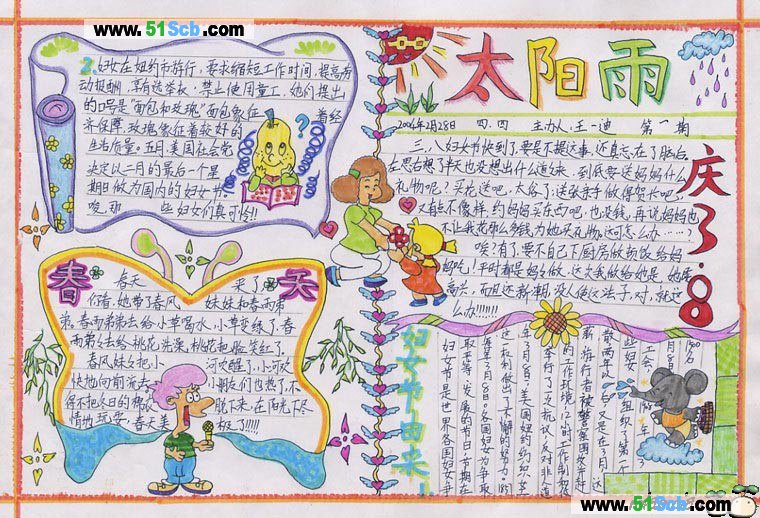 www.51Scb.com
www.51Scb.com
太阳雨
2006年2月28日 四.四 主办人:王一迪 第一期
2.妇女在纽约市游行,要求缩短工作时间,提高劳
动报酬,享有选举权,禁止使用童工,她们提出
的口号是“面包和玫瑰”面包象征着经
济保障,玫瑰象征着较好的
生活质量。五月,美国社会党
决定以二月的最后一个星
期日做为国内的妇女节。
些妇女们真可怜!!
庆3·8
三、八妇女节快到了,要是不提这事,还真忘在了脑后。
左思右想了半天也没想出什么道来,到底要送妈妈什么
礼物呢?买花送吧,太俗了;送张亲手做得贺卡吧,
又有点不像样,约妈妈买东西吧,也没钱,再说妈妈也
不让我花那么多钱为她买礼物,这可怎么办……?
唉!有了,要不自己下厨房做奶饭给妈
妈吃!平时都是妈妈做,这次我做给她是,她准
高兴,而且还新期,没人使这法子,对,就这
么办!!!!
春天
春天来了
你看,她带了春风妹妹和春雨弟
弟,春雨弟弟去给小草喝水,小草变绿了,春
雨弟弟去给桃花洗澡,桃花把脸笑红了。
春风妹妹把小河吹醒了,小河欢
快地向前流去,小朋友们也热了,不
得不把冬日的棉衣脱下来,在阳光下尽
情地玩耍,春天美极了!!!!!
妇女节由来!
妇女节是世界各国妇女争
取平等、发展的节日。节期在
每年3月8日。各国妇女为争取
这一权利做了不懈的努力。
年3月8日,美国纽约纺织女
工举行了一次抗议,反对非人道
的工作环境,12小时工作制和低
薪。游行者被警察围攻并赶
散,两年以后,又是在3月,这
些妇女组织了第一个
工会
www.51Scb.com